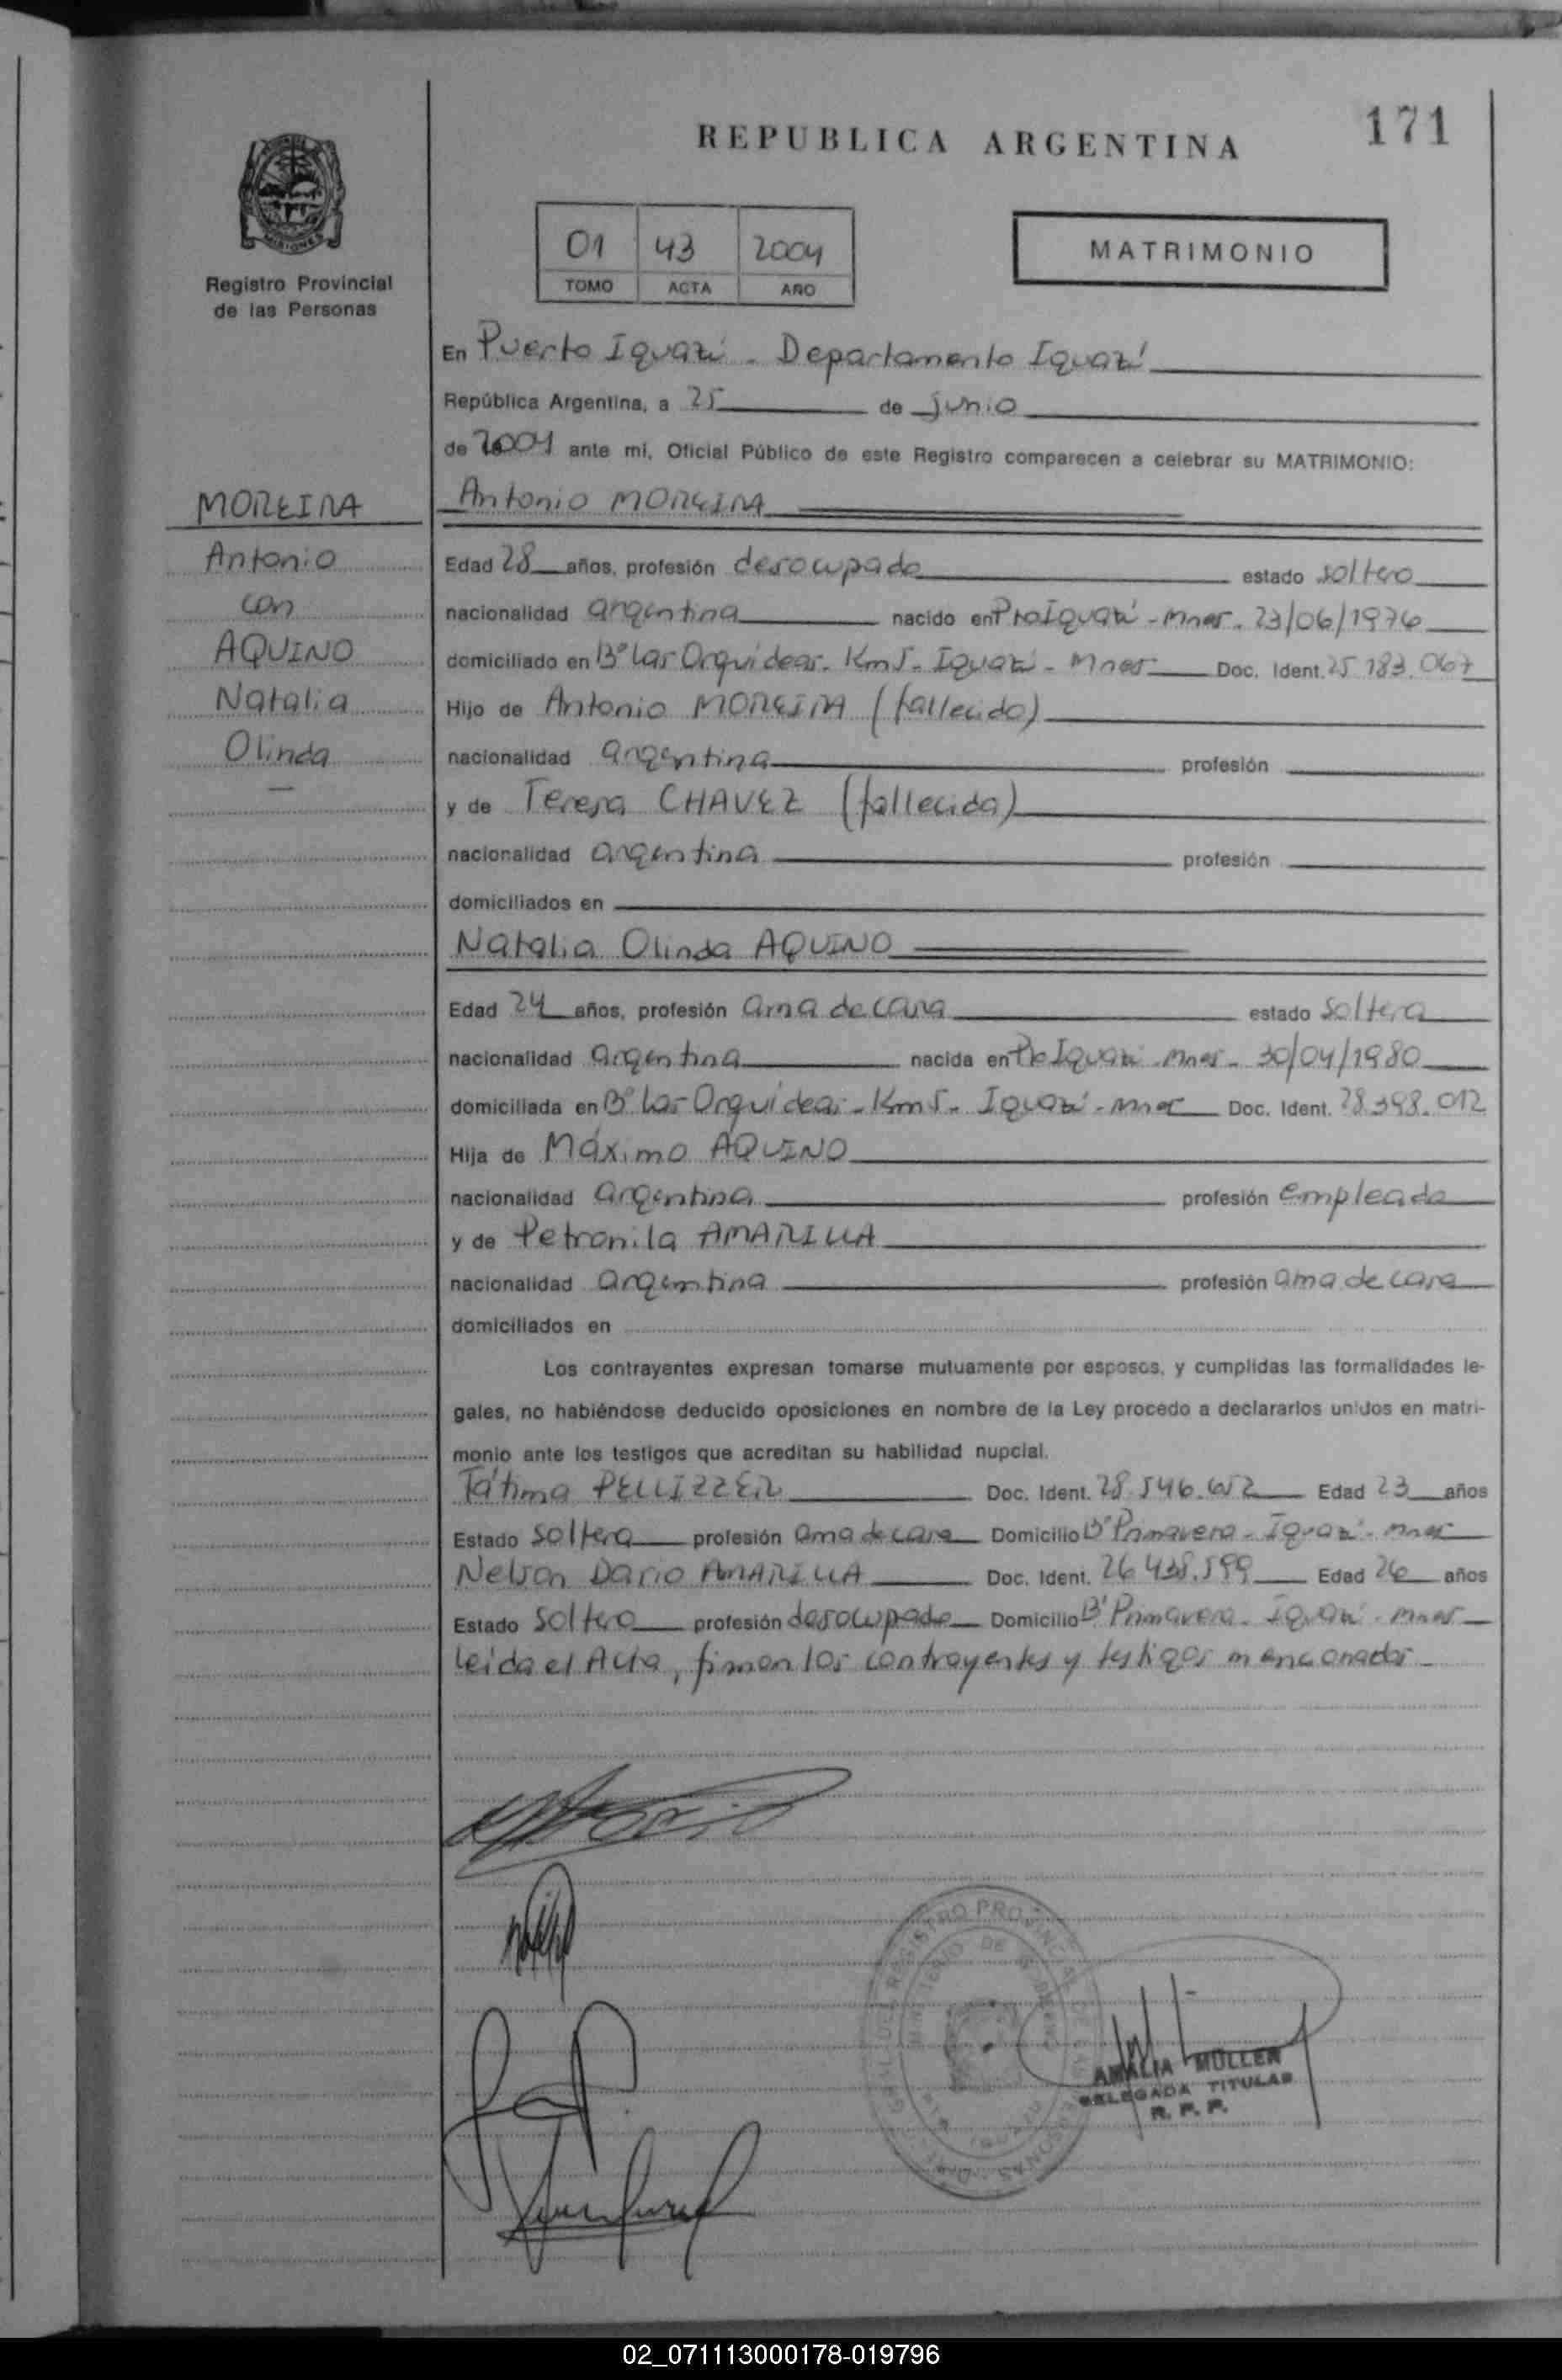 171
REPUBLICA ARGENTINA
MISIONES
Registro Provincial
de las Personas
01 43 2004
TOMO ACTA AÑO
MATRIMONIO
En Puerto Iguazú - Departamento Iguazú
República Argentina, a 25 de junio
de 2004 ante mí, Oficial Público de este Registro comparecen a celebrar su MATRIMONIO:
MOREIRA
Antonio
con
AQUINO
Natalia
Olinda
Antonio MOREIRA
Edad 28 años, profesión desocupado estado soltero
nacionalidad argentina nacido en Pto Iguazú - Mnes. 23/06/1976
domiciliado en B° Las Orquideas - Km 5 - Iguazú - Mnes Doc. Ident. 25.183.067
Hijo de Antonio MOREIRA (fallecido)
nacionalidad argentina profesión
y de Teresa CHAVEZ (fallecida)
nacionalidad argentina profesión
domiciliados en
Natalia Olinda AQUINO
Edad 24 años, profesión ama de casa estado soltera
nacionalidad argentina nacida en Pto Iguazú - Mnes - 30/04/1980
domiciliada en B° Las Orquideas - Km 5 - Iguazú - Mnes Doc. Ident. 28.398.012
Hija de Máximo AQUINO
nacionalidad argentina profesión empleado
y de Petronila AMARILLA
nacionalidad argentina profesión ama de casa
domiciliados en
Los contrayentes expresan tomarse mutuamente por esposos, y cumplidas las formalidades le-
gales, no habiéndose deducido oposiciones en nombre de la Ley procedo a declararlos unidos en matri-
monio ante los testigos que acreditan su habilidad nupcial.
Fátima PELLIZZER Doc. Ident. 28.546.652 Edad 23 años
Estado soltera profesión ama de casa Domicilio B° Primavera - Iguazú - Mnes
Nelson Dario AMARILLA Doc. Ident. 26.438.599 Edad 26 años
Estado soltero profesión desocupado Domicilio B° Primavera - Iguazú - Mnes
Leida el Acta, firman los contrayentes y testigos mencionados -
AMALIA MÜLLER
DELEGADA TITULAR
R. P. P.
02_071113000178-019796